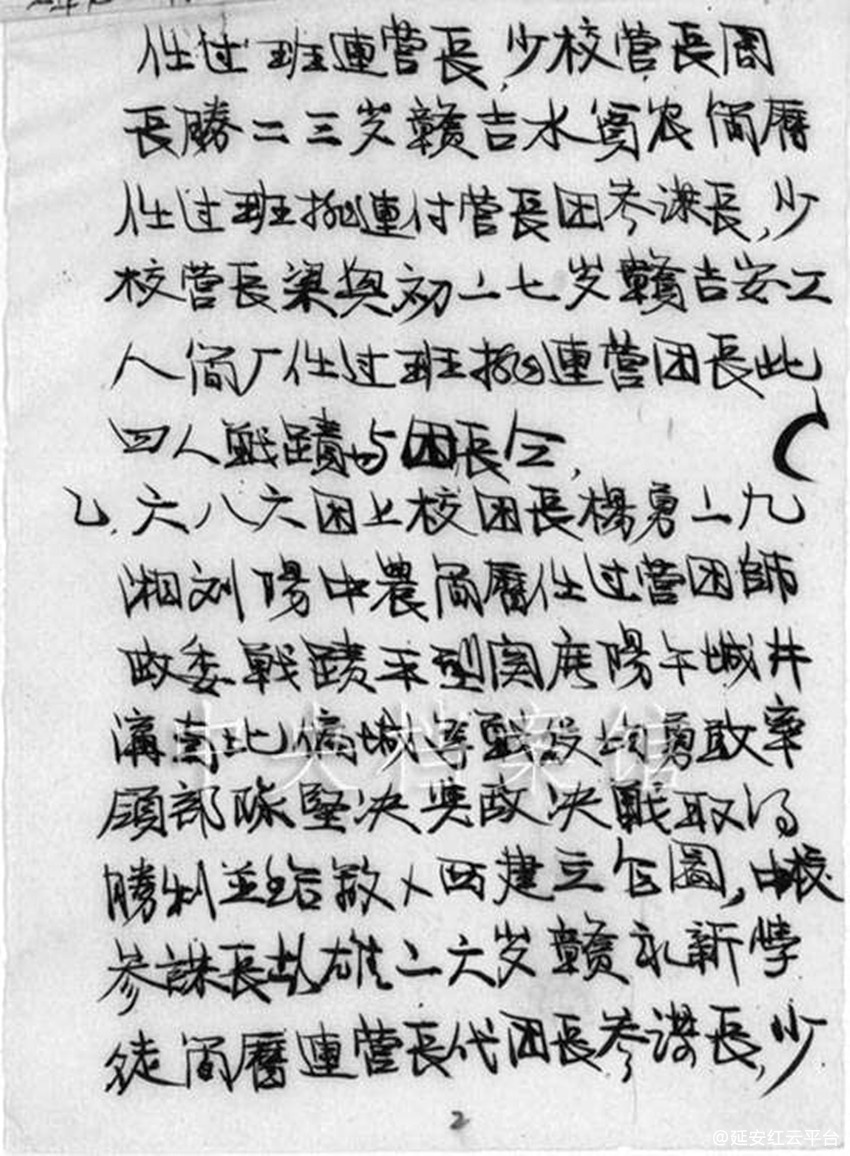 任过班連营長,少校营長周
長勝二三岁贛吉水貧农简曆
任过班排連付营長团参謀長,少
校营長梁興初二七岁贛吉安工
人简厂任过班排連营团長此
四人戰蹟与团長仝,
乙.六八六团上校团長楊勇二九
湘刘陽中農简曆任过营团師
政委戰蹟平型関廣陽午城井
溝 此 城等戰役均勇敢率
領部隊堅决 政决戰取得
勝利並給敌人 建立 圖,中校
参謀長 雄二六岁贛永新学
徒简曆連营長代团長参謀長,少
2
中央档案馆
@延安红云平台